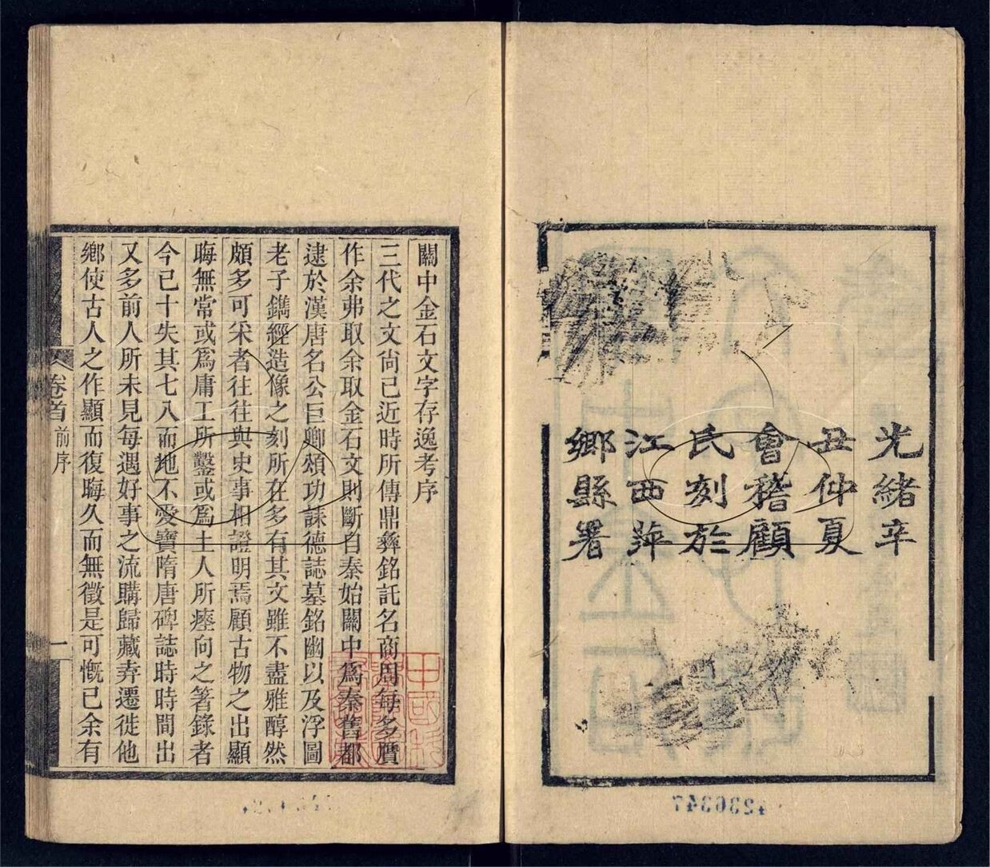 光緒辛
丑仲夏
會稽顧
氏刻於
江西萍
鄉縣署
關中金石文字存逸考序
三代之文尙已近時所傳鼎彝銘託名商周每多贗
作余弗取余取金石文則斷自秦始關中爲秦舊都
逮於漢唐名公巨卿頌功誄德誌墓銘幽以及浮圖
老子鐫經造像之刻所在多有其文雖不盡雅醇然
頗多可采者往往與史事相證明焉顧古物之出顯
晦無常或爲庸工所鑿或爲土人所瘞向之箸錄者
今已十失其七八而地不愛寶隋唐碑誌時時間出
又多前人所未見每遇好事之流購歸藏弆遷徙他
鄉使古人之作顯而復晦久而無徵是可慨已余有
卷首
前序
一